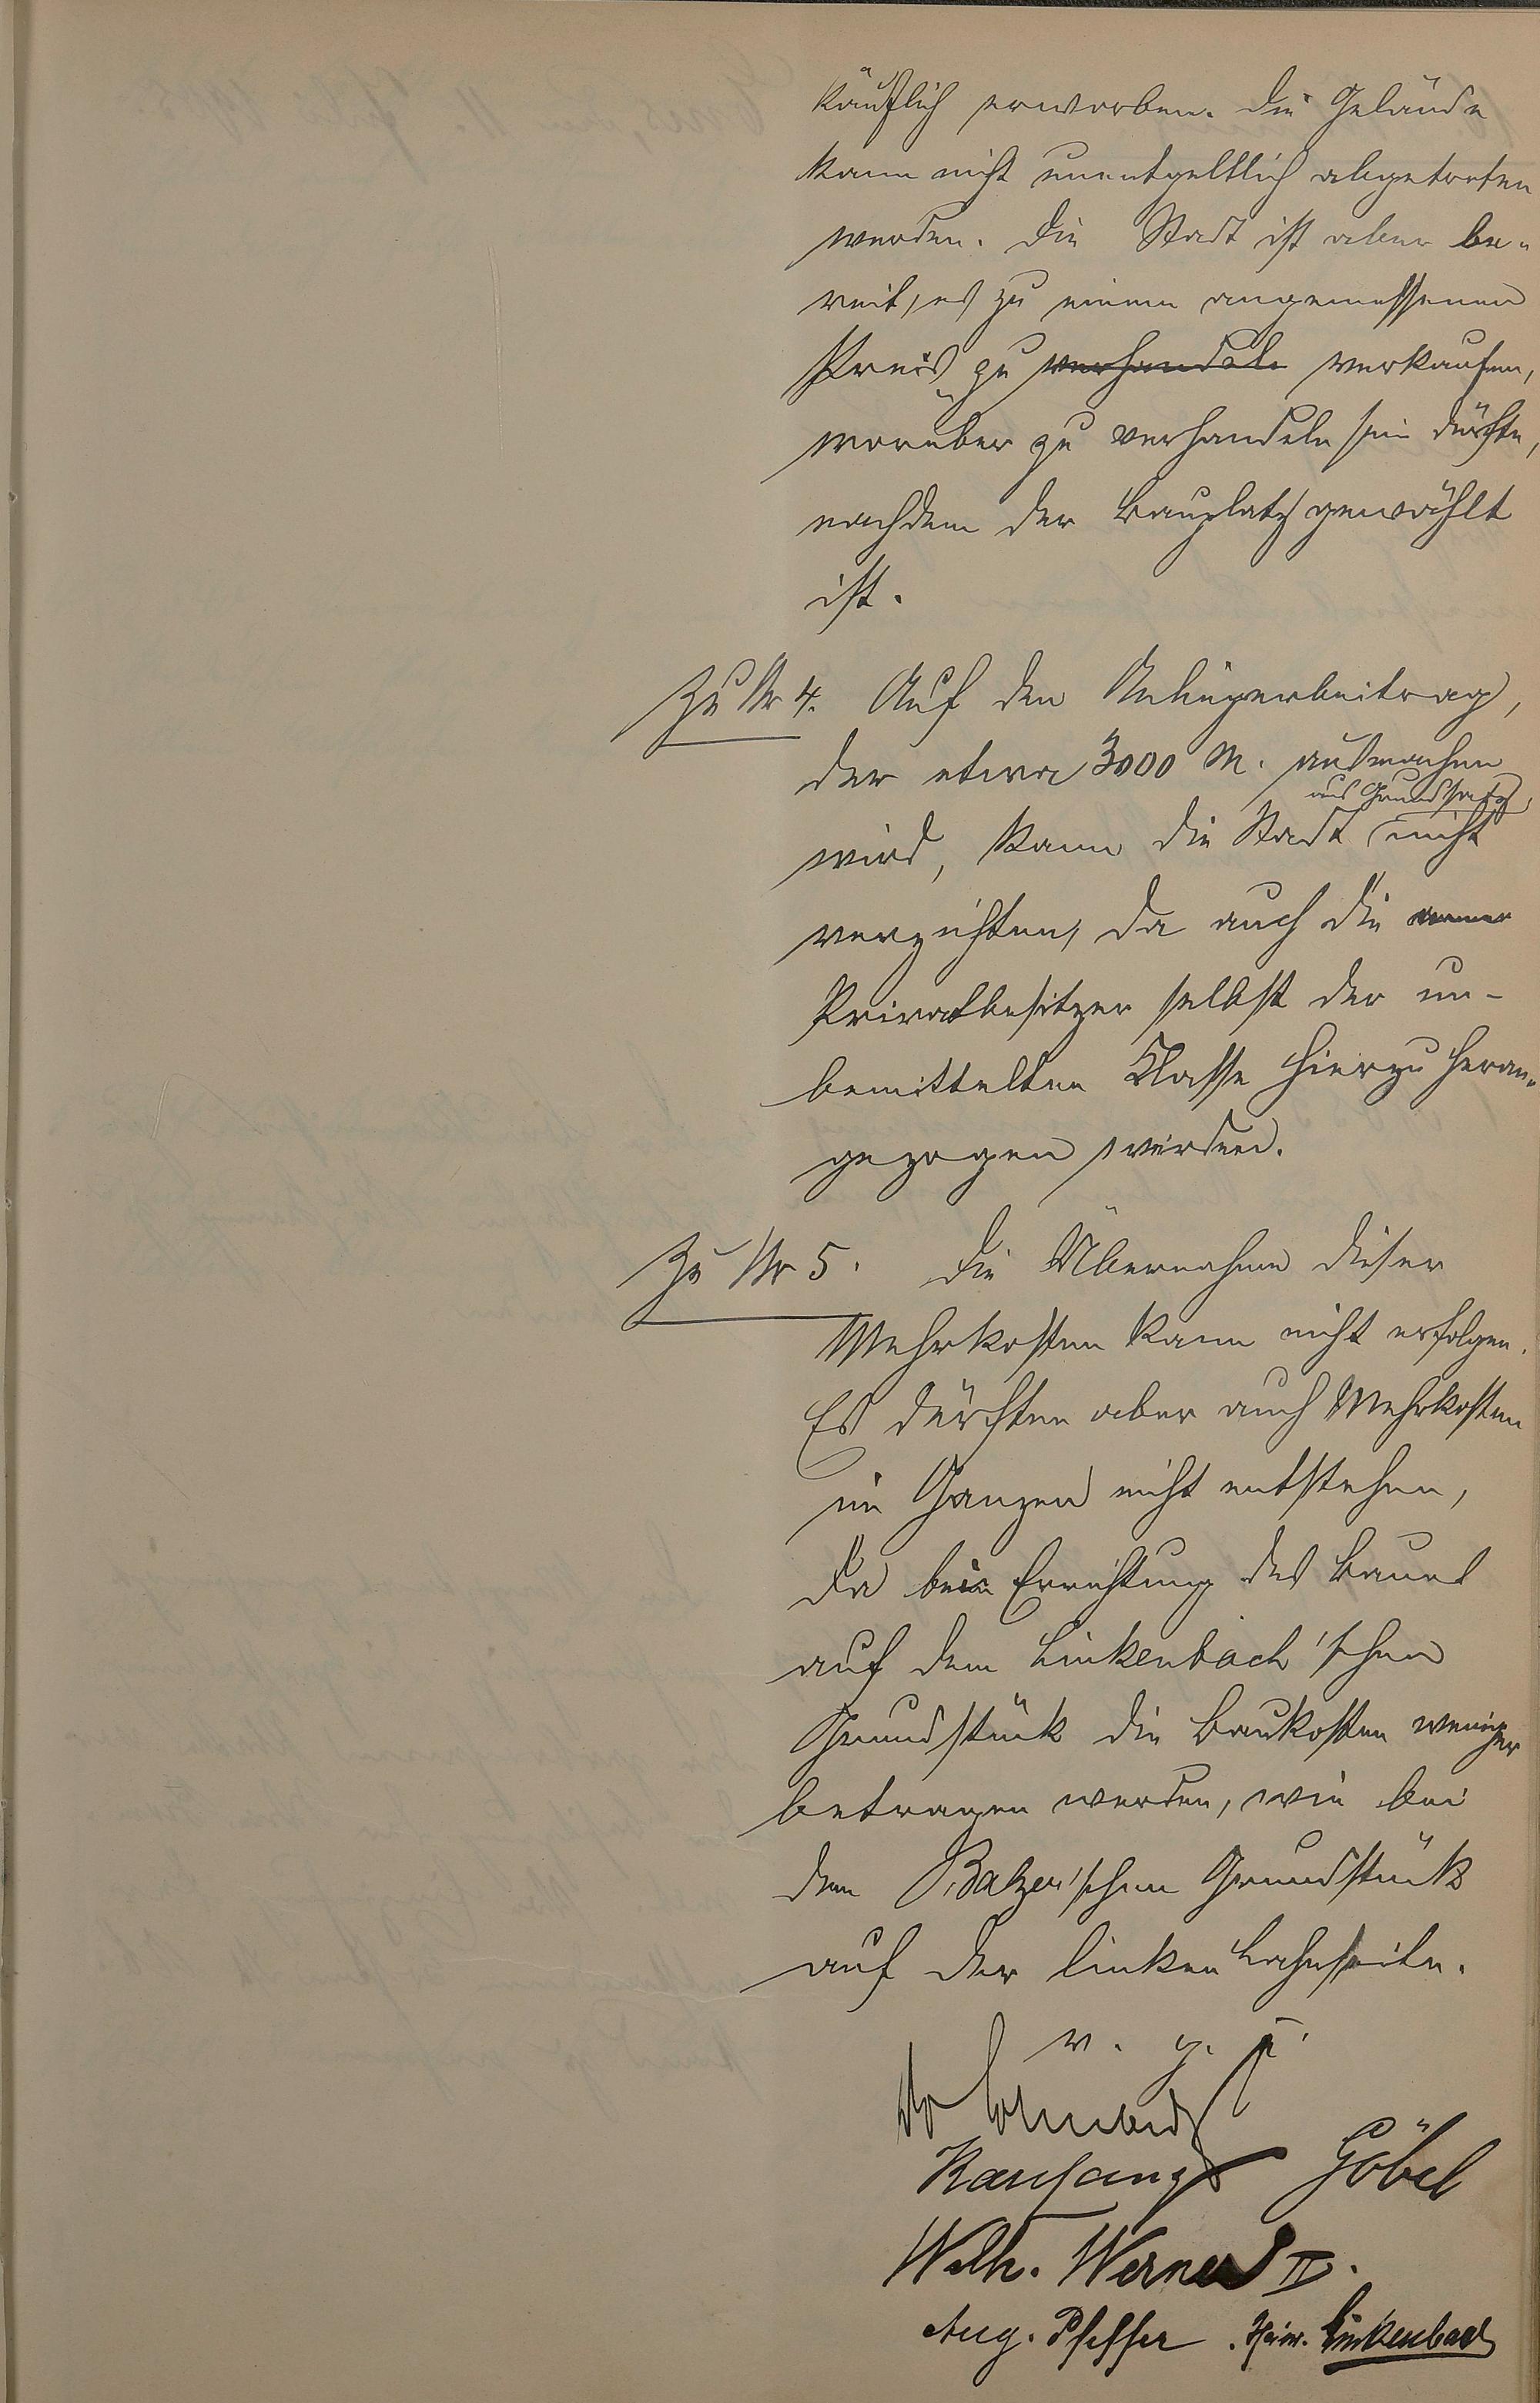 käuflich erworben. Die Gelände
kann nicht unentgeltlich abgetreten
werden. Die Stadt ist aber be-
reit, es zu einem angemessenen
Preis zu verhandeln verkaufen,
worüber zu verhandeln sein dürfte,
nachdem der Bauplatz gewählt
ist.
Zu Nr 4. Auf den Anliegerbeitrag,
der etwa 3000 M. ausmachen
aus Grundsatz
wird, kann die Stadt nicht
verzichten, da auch die
Privatbesitzer selbst der un-
bemittelten Classe hierzu heran-
gezogen würden.
Zu Nr 5. Die Übernahme dieser
Mehrkosten kann nicht erfolgen.
Es dürften aber auch Mehrkosten
im Ganzen nicht entstehen,
da bei Errichtung des Baues
auf dem Linkenbach'schen
Grundstück die Baukosten weniger
betragen werden, wie bei
dem Balzer'schen Grundstück
auf der linken Lahnseite.
v. g. u.
Göbel
Wilh. Werner II.
Aug. Pfeffer . Heinr. Linkenbach